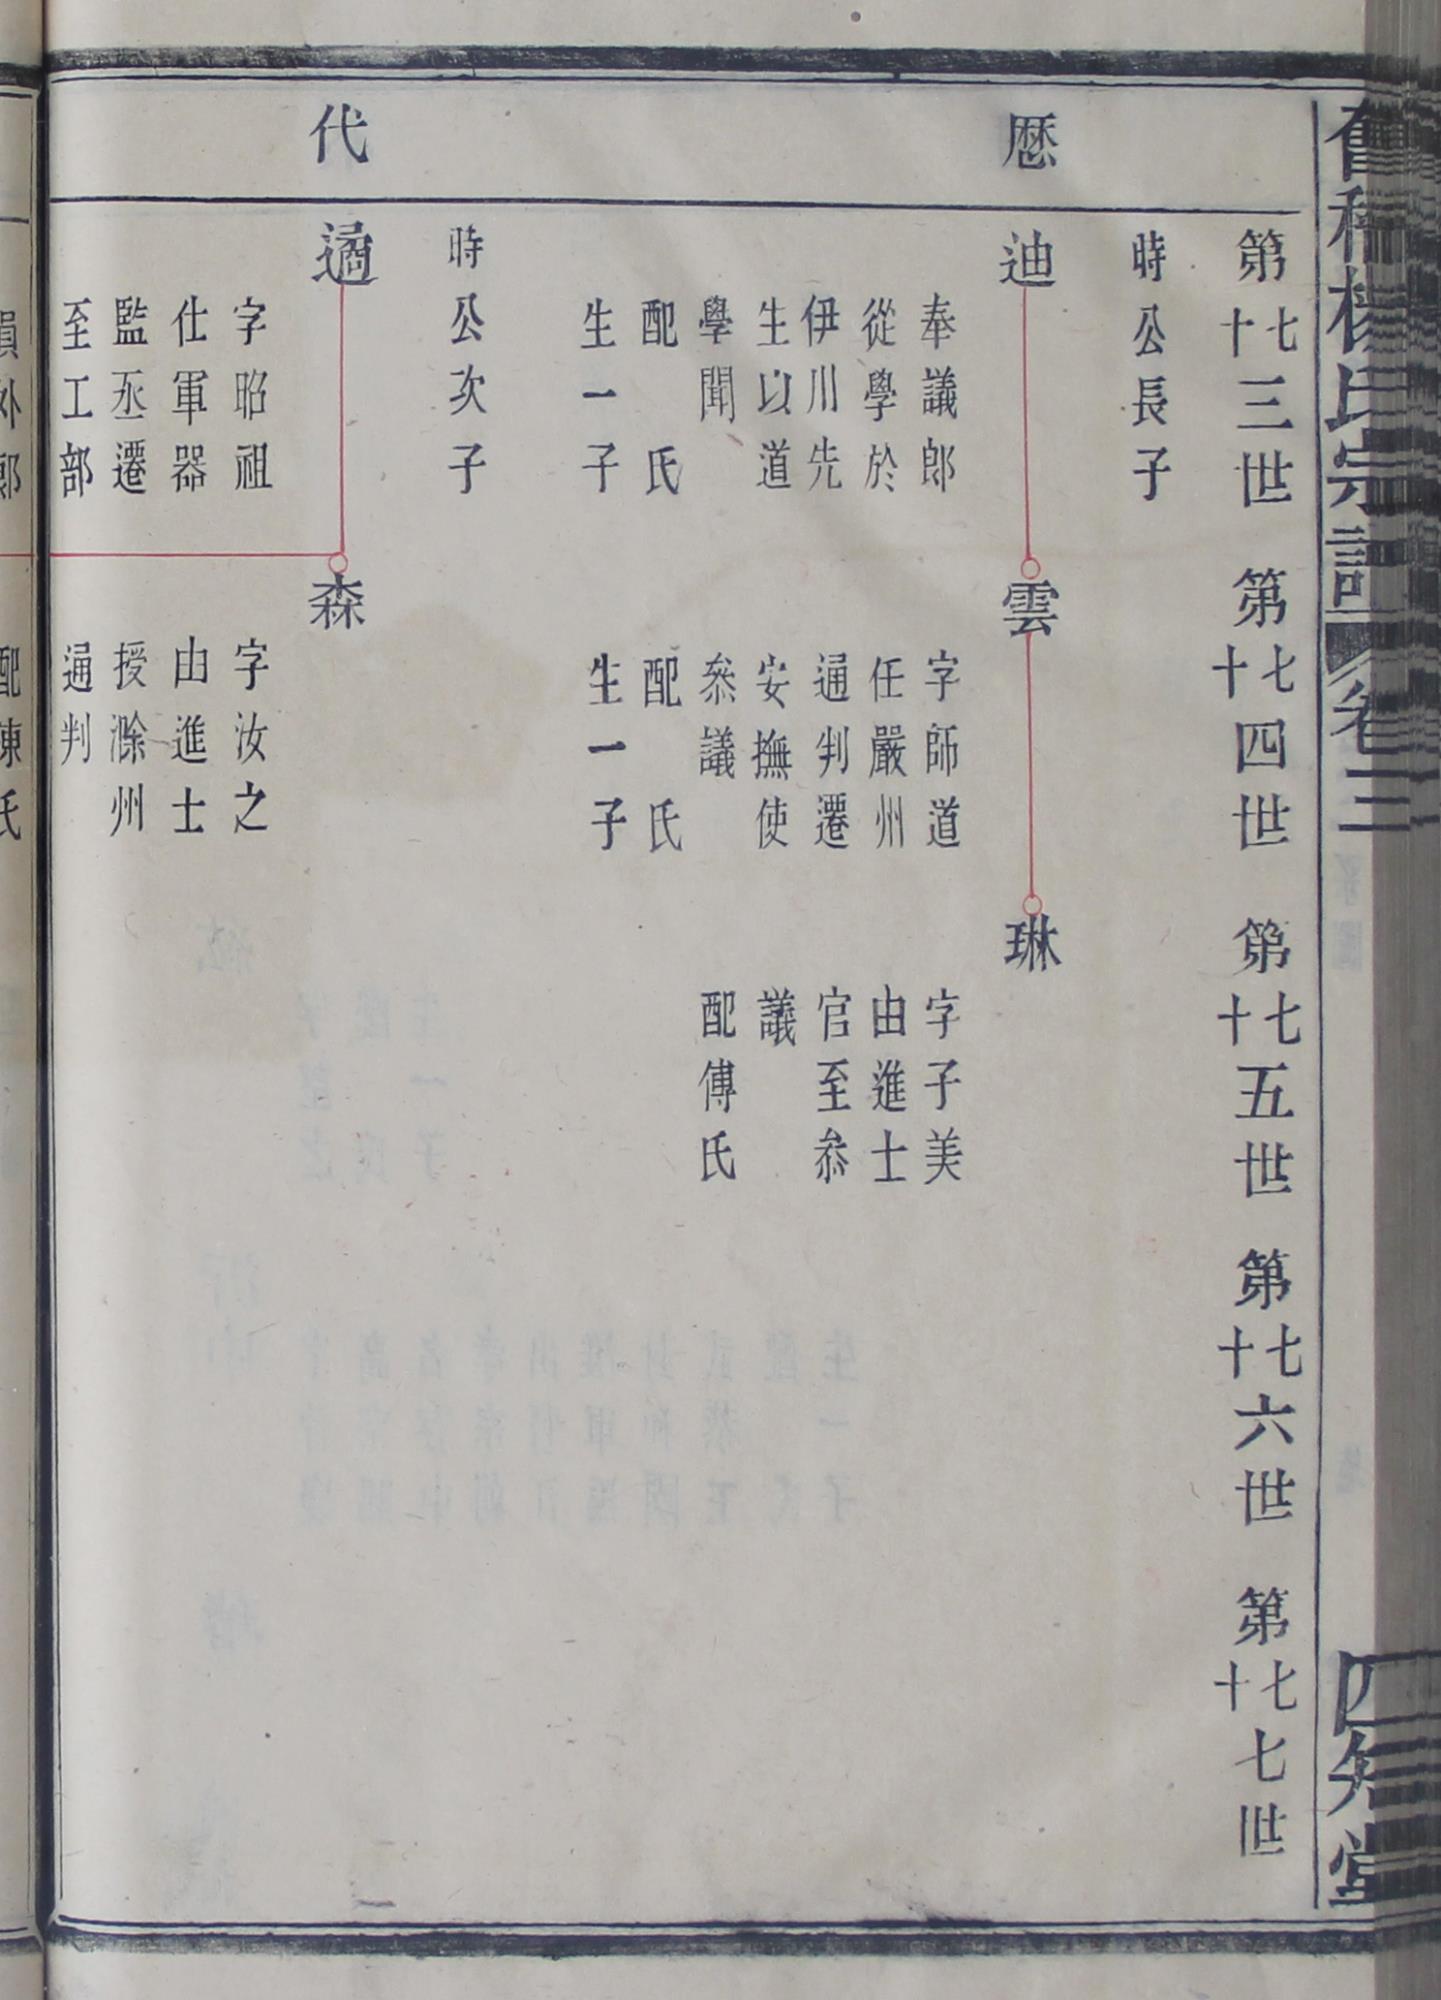 楊氏宗譜 卷三 四知堂
厯
代
第七十三世 第七十四世 第七十五世 第七十六世 第七十七世
時公長子
迪
奉議郎
從學於
伊川先
生以道
學聞
配 氏
生一子
雲
字師道
任嚴州
通判遷
安撫使
叅議
配 氏
生一子
琳
字子美
由進士
官至叅
議
配傅氏
時公次子
遹
字昭祖
仕軍器
監丞遷
至工部
森
字汝之
由進士
授滁州
通判
員外郎
配陳氏